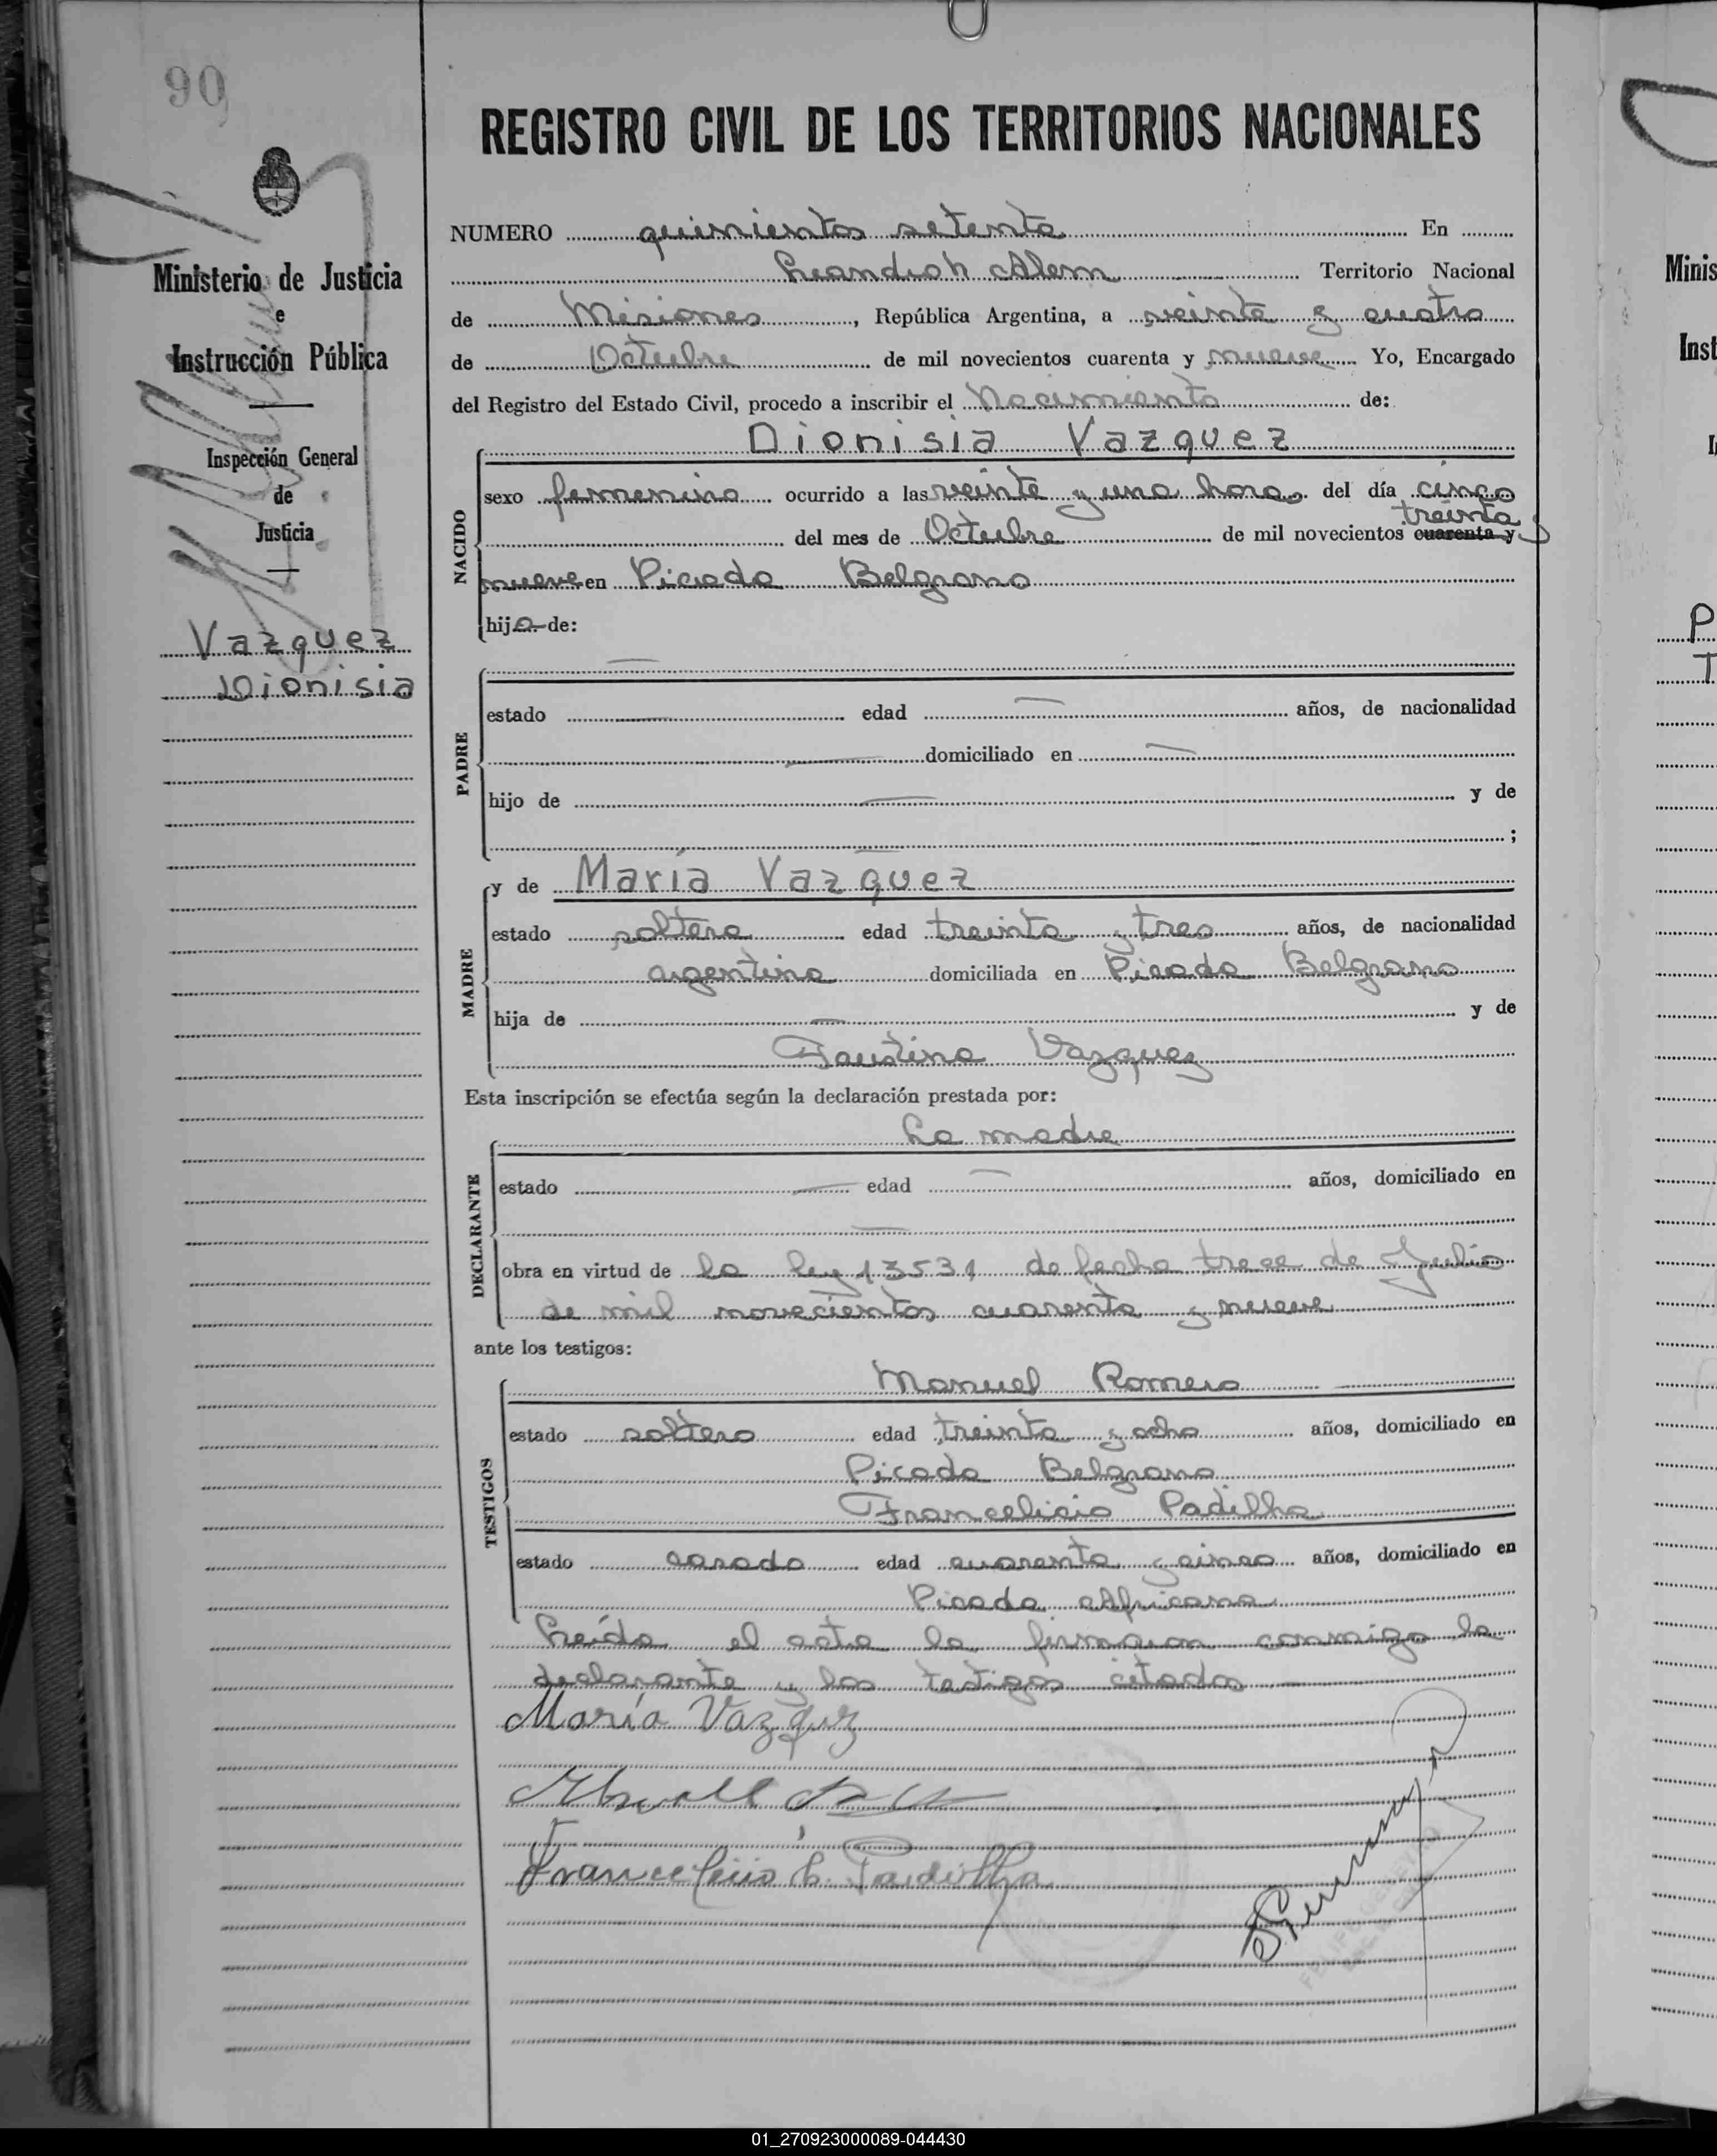 90
REGISTRO CIVIL DE LOS TERRITORIOS NACIONALES
Ministerio de Justicia
e
Instrucción Pública
Inspección General
de
Justicia
Vazquez
Dionisia
NUMERO quinientos setenta En
Leandro N Alem Territorio Nacional
de Misiones, República Argentina, a veinte y cuatro
de Octubre de mil novecientos cuarenta y nueve Yo, Encargado
del Registro del Estado Civil, procedo a inscribir el Nacimiento de:
Dionisia Vazquez
NACIDO
sexo femenino ocurrido a las veinte y una horas del día cinco
treinta y
del mes de Octubre de mil novecientos cuarenta y
nueve en Picada Belgrano
hija de:
PADRE
estado edad años, de nacionalidad
domiciliado en
hijo de y de
;
MADRE
y de María Vazquez
estado soltera edad treinta y tres años, de nacionalidad
argentina domiciliada en Picada Belgrano
hija de y de
Faustina Vazquez
Esta inscripción se efectúa según la declaración prestada por:
La madre
DECLARANTE
estado edad años, domiciliado en
obra en virtud de la ley 13531 de fecha trece de Julio
de mil novecientos cuarenta y nueve
ante los testigos:
TESTIGOS
Manuel Romero
estado soltero edad treinta y ocho años, domiciliado en
Picada Belgrano
Francelicio Padilha
estado casado edad cuarenta y cinco años, domiciliado en
Picada Africana
Leída el acta la firmaron conmigo la
declarante y los testigos citados
María Vazquz
Francelicio Padilha
Minis
Inst
P
T
01_270923000089-044430